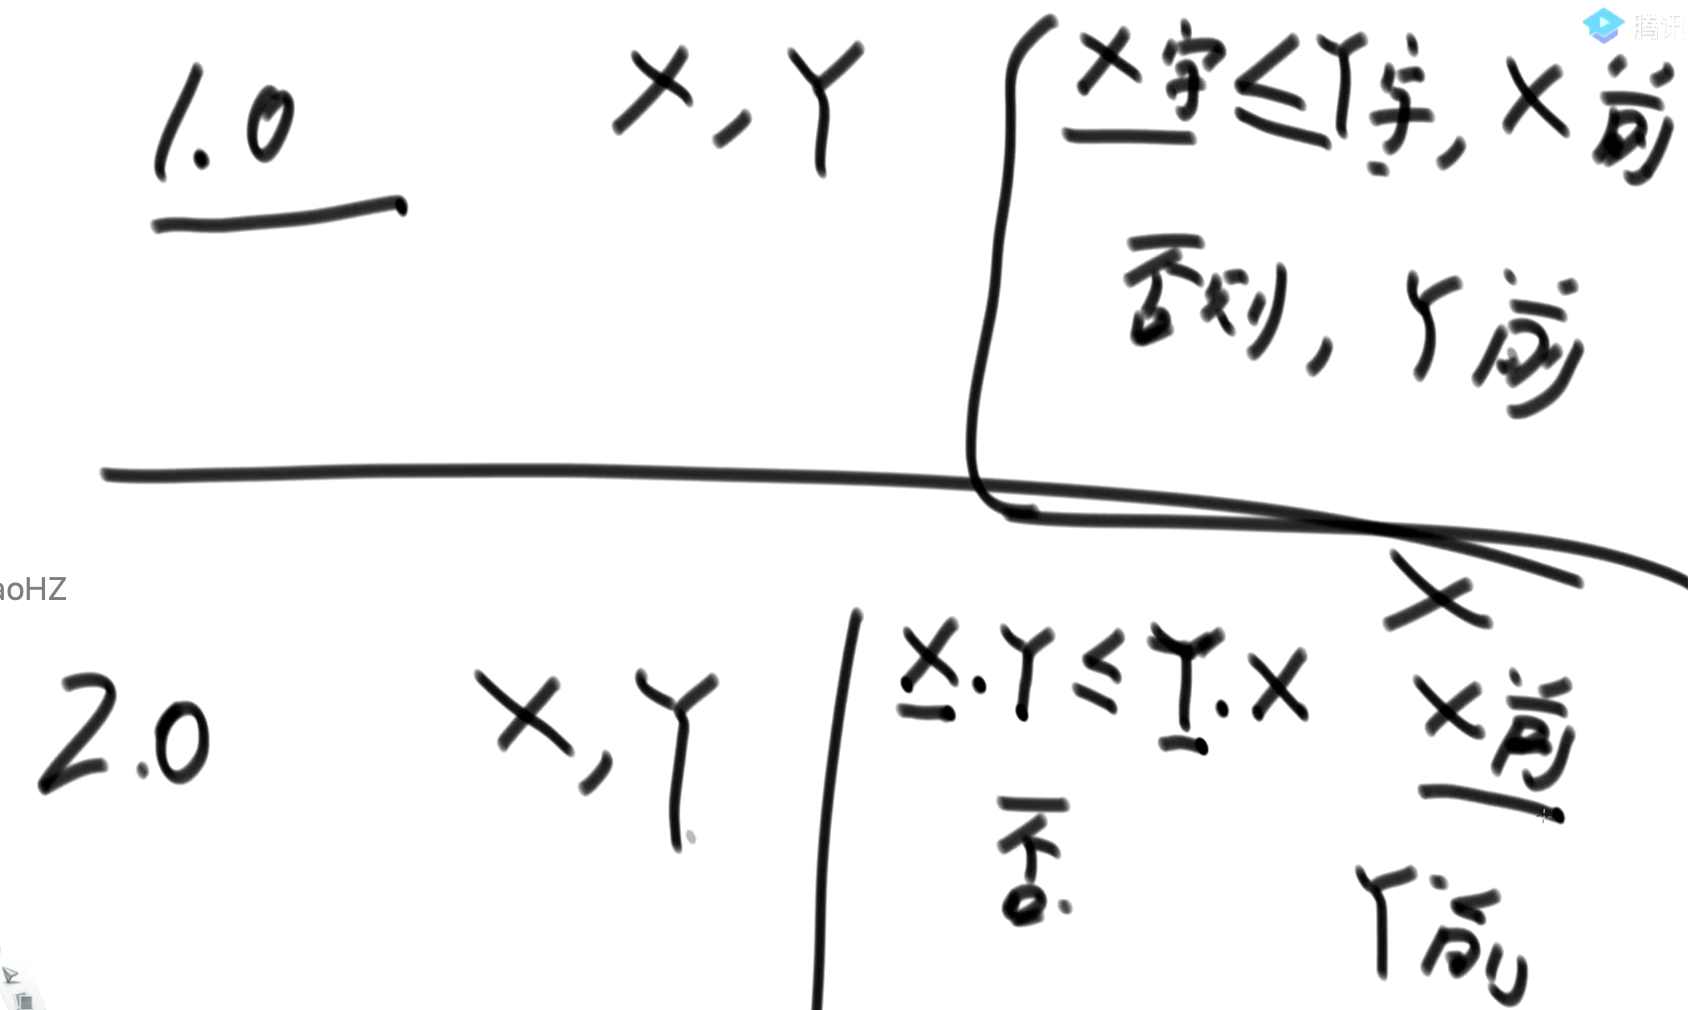 腾讯
1.0 X,Y X字≤Y字,X前
否则,Y前
aoHZ
X
2.0 X,Y X.Y≤Y.X X前
否. Y前